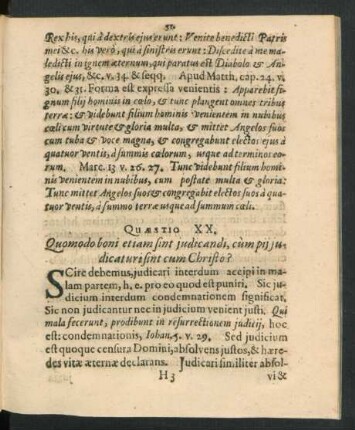 Rex his, qui à dextris ejus erunt: Venite benedicti Patris
mei &c. his verò, qui à sinistris erunt: Discedite à me ma-
ledicti in ignem æternum, qui paratus est Diabolo & An-
gelis ejus, &c. v. 34. & seqq. Apud Matth. cap. 24. v.
30. & 31. Forma est expressa venientis: Apparebit si-
gnum filij hominis in cœlo, & tunc plangent omnes tribus
terræ: & videbunt filium hominis venientem in nubibus
cæli cum virtute & gloria multa, & mittet Angelos suos
cum tuba & voce magna, & congregabunt electos ejus à
quatuor ventis, à summis cælorum, usque ad terminos eo-
rum. Marc. 13 v. 26. 27. Tunc videbunt filium homi-
nis venientem in nubibus, cum potestate multa & gloria:
Tunc mittet Angelos suos & congregabit electos suos à qua-
tuor ventis, à summo terræ usque ad summum cæli.
QUÆSTIO XX.
Quomodo boni etiam sint judicandi, cum pij ju-
dicaturi sint cum Christo?
SCire debemus, judicari interdum accipi in ma-
lam partem, h. e. pro eo quod est puniri. Sic ju-
dicium interdum condemnationem significat.
Sic non judicantur nec in judicium venient justi. Qui
mala fecerunt, prodibunt in resurrectionem judicij, hoc
est: condemnationis, Johan. 5. v. 29. Sed judicium
est quoque censura Domini, absolvens justos, & hære-
des vitæ æternæ declarans. Judicari similiter absol-
H 3 vi &